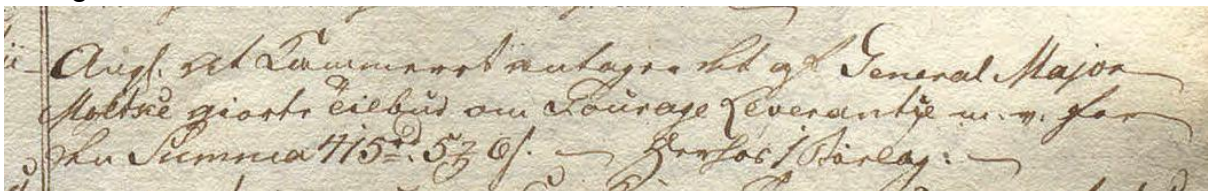 Angl. at Kammeret antager det af General Major
Moltke giorte Tilbud om Fourage Leverantse m. v. for
en Summa 415rd. 5 ß. — Herhos 1 Bielag: —